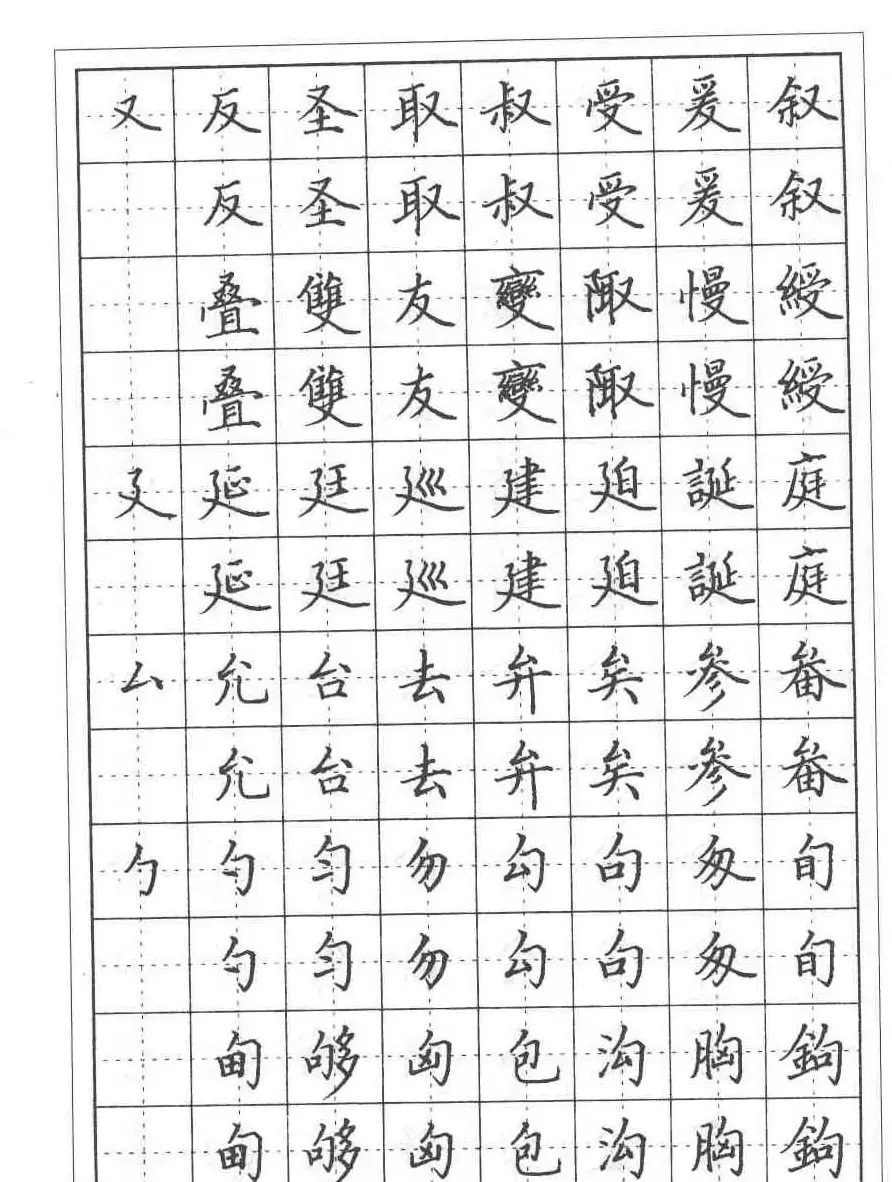 又 反 圣 取 叔 受 爰 叙
反 圣 取 叔 受 爰 叙
叠 雙 友 變 陬 慢 綬
叠 雙 友 變 陬 慢 綬
廴 延 廷 巡 建 廹 誕 庭
延 廷 巡 建 廹 誕 庭
厶 允 台 去 弁 矣 參 畚
允 台 去 弁 矣 參 畚
勹 勺 匀 勿 勾 句 匆 旬
勺 匀 勿 勾 句 匆 旬
甸 够 匈 包 沟 胸 鉤
甸 够 匈 包 沟 胸 鉤